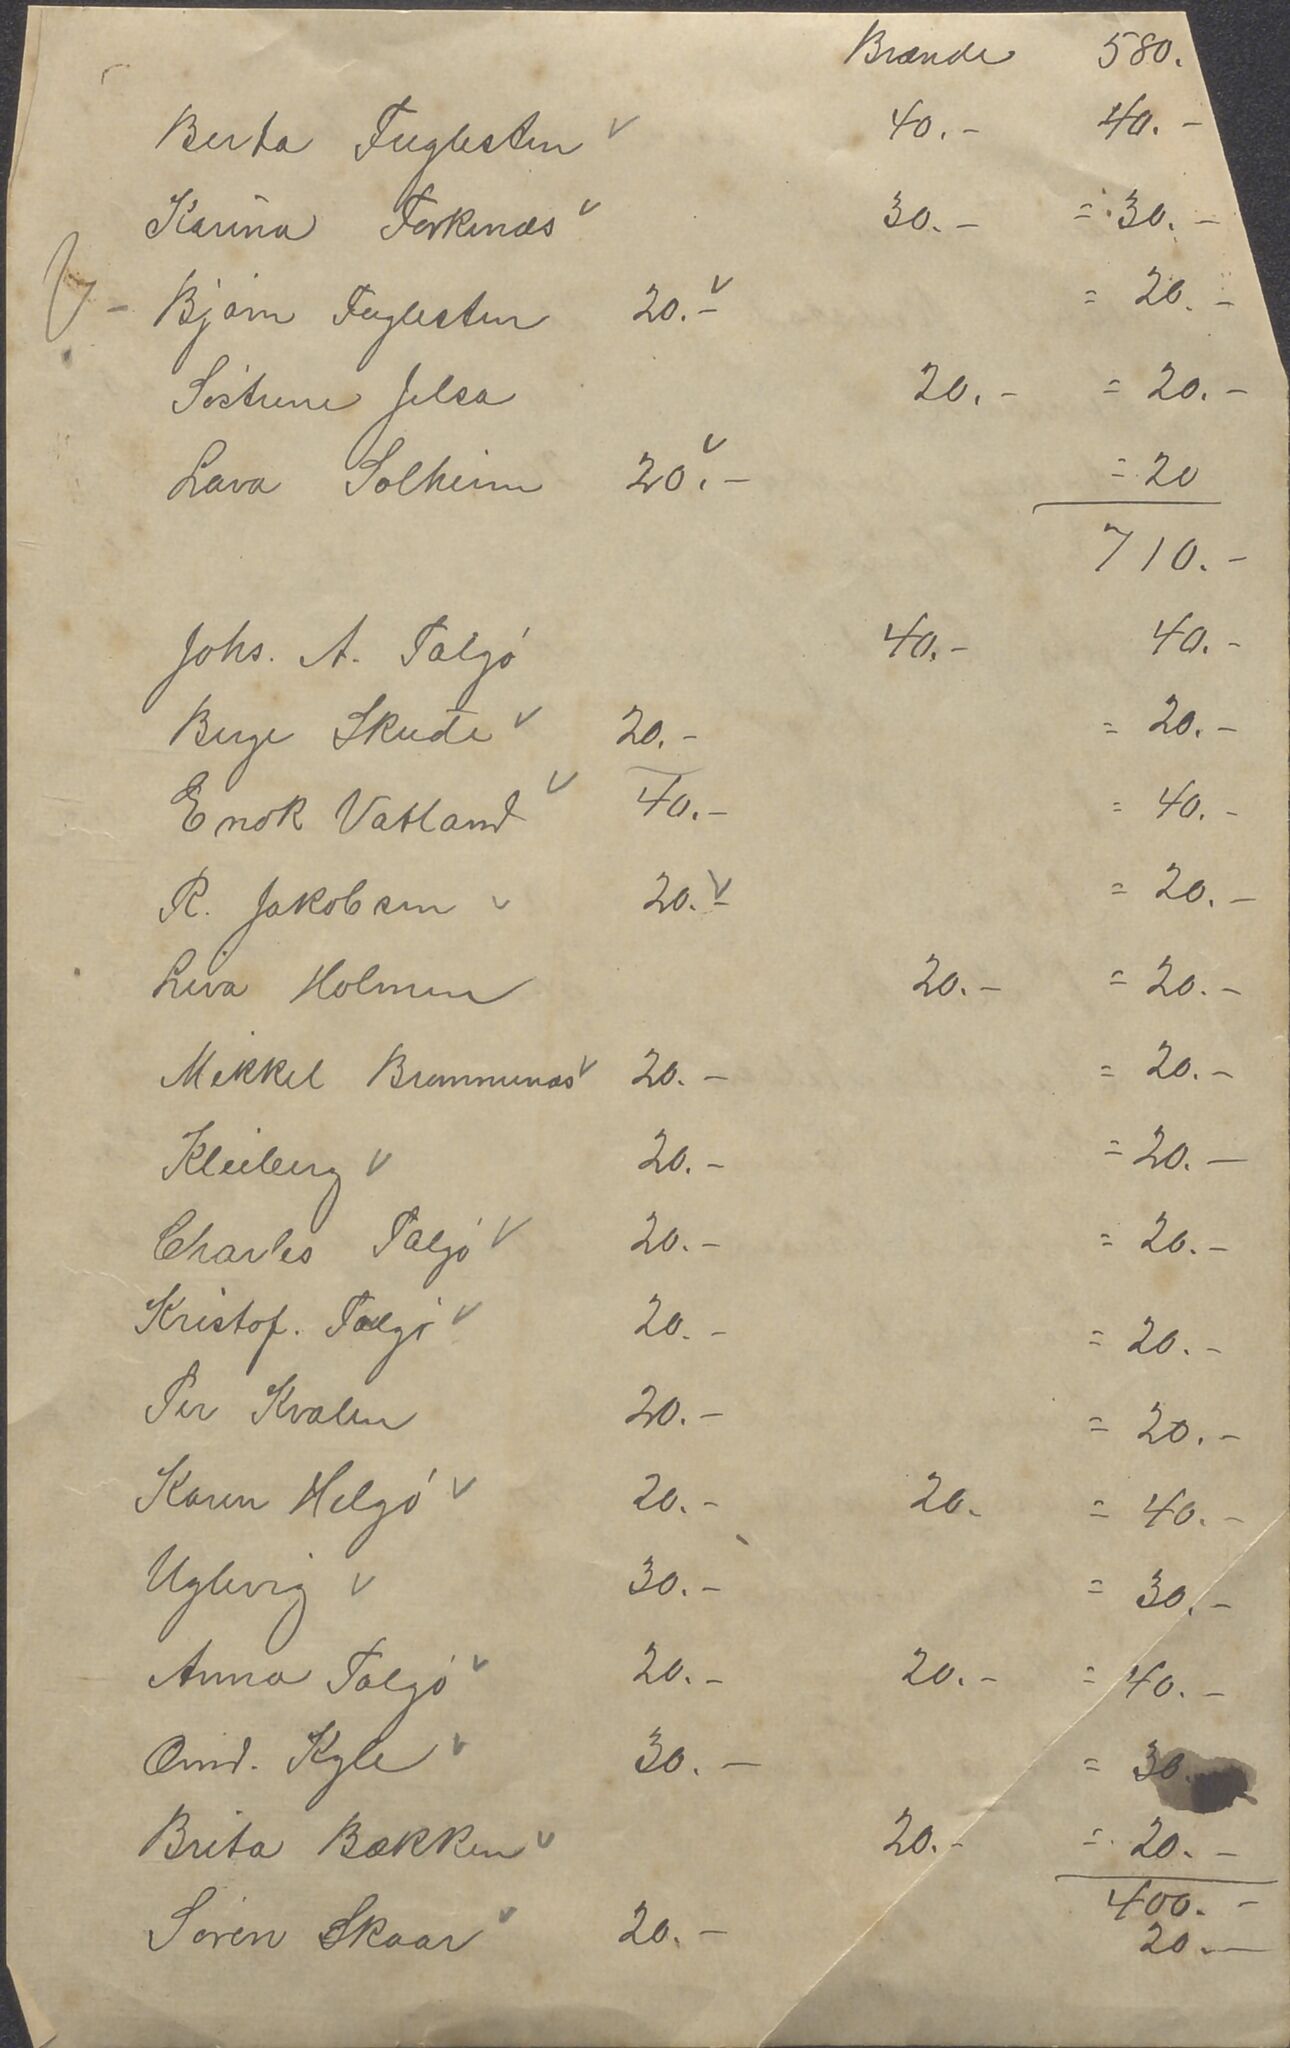 Brænde 580.
Berta Fuglesten v 40.- 40.-
Karina Forkenæs v 30.- = 30.-
- Bjørn Fuglesten 20.- v = 20.-
Söstrene Jelsa 20.- = 20.-
Lava Solheim 20.- v = 20
710.-
Johs. A. Talgö 40.- 40.-
Berge Skude v 20.- = 20.-
Enok Vatland v 40.- = 40.-
R. Jakobsen v 20.- v = 20.-
Liva Holmen 20.- = 20.-
Mikkel Brommenæs v 20.- = 20.-
Kleiberg v 20.- = 20.-
Charles Talgó v 20.- = 20.-
Kristof. Talgó v 20.- = 20.-
Per Kvalen 20.- = 20.-
Karen Helgó v 20.- 20. = 40.-
Uglevig v 30.- = 30.-
Anna Talgó v 20.- 20.- = 40.-
Omd. Kyle v 30.- = 30.
Brita Bakken v 20.- = 20.-
400.-
Sören Skaar v 20.- 20.-